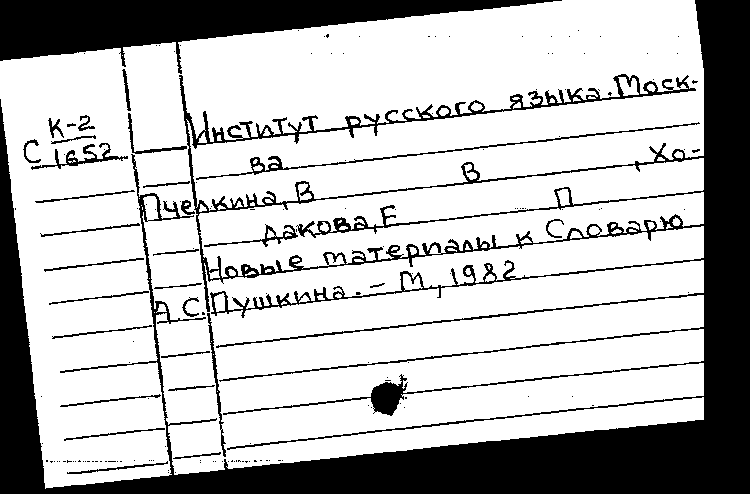 К-2
С 1652
Институт русского языка. Моск-
ва
Пчелкина, В В , Хо-
дакова, Е П
Новые материалы к Словарю
А.С. Пушкина. – М, 1982